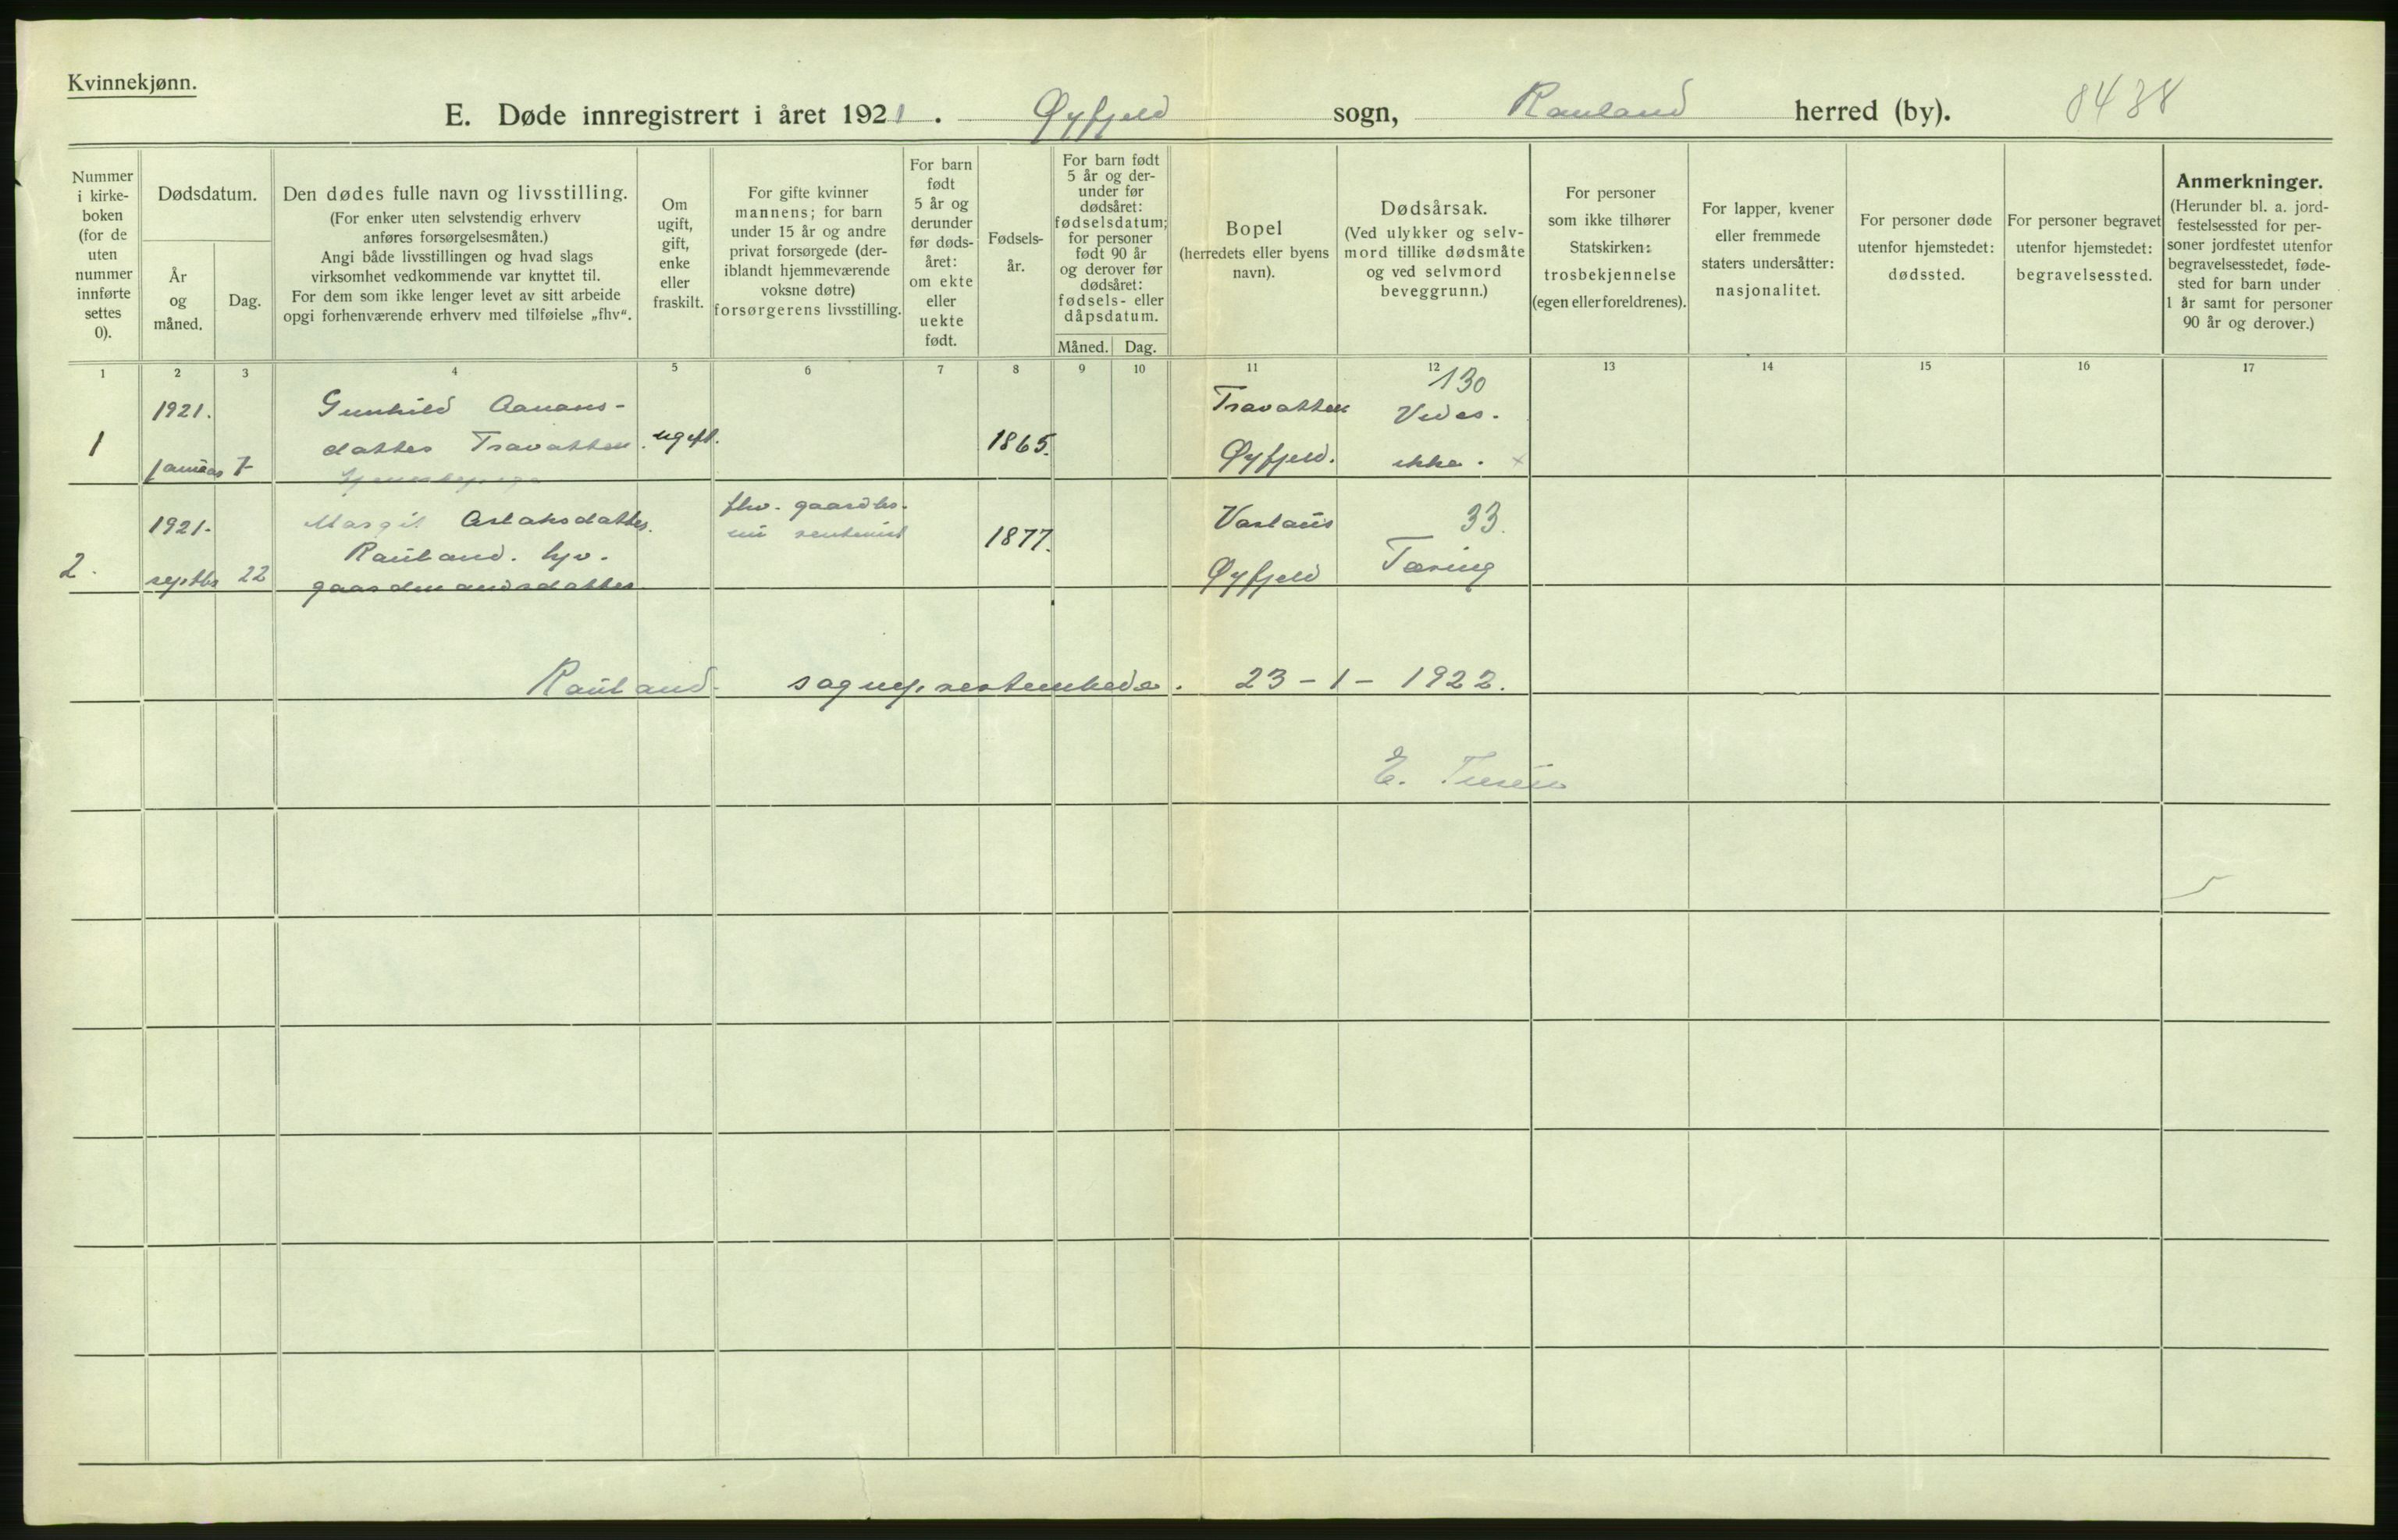 Kvinnekjønn.
E. Døde innregistrert i året 1921. Øyfjeld sogn, Rauland herred (by). 8438
Nummer i kirke-boken (for de uten nummer innførte settes 0).
Dødsdatum.
År og måned.
Dag.
Den dødes fulle navn og livsstilling.
(For enker uten selvstendig erhverv
anføres forsørgelsesmåten.)
Angi både livsstillingen og hvad slags
virksomhet vedkommende var knyttet til.
For dem som ikke lenger levet av sitt arbeide
opgi forhenværende erhverv med tilføielse „fhv“.
Om
ugift,
gift,
enke
eller
fraskilt.
For gifte kvinner
mannens; for barn
under 15 år og andre
privat forsørgede (der-
iblandt hjemmeværende
voksne døtre)
forsørgerens livsstilling.
For barn
født
5 år og
derunder
før døds-
året:
om ekte
eller
uekte
født.
Fødsels-
år.
For barn født
5 år og der-
under før
dødsåret:
fødselsdatum;
for personer
født 90 år
og derover før
dødsåret:
fødsels- eller
dåpsdatum.
Måned. Dag.
Bopel
(herredets eller byens
navn).
Dødsårsak.
(Ved ulykker og selv-
mord tillike dødsmåte
og ved selvmord
beveggrunn.)
For personer
som ikke tilhører
Statskirken:
trosbekjennelse
(egen eller foreldrenes).
For lapper, kvener
eller fremmede
staters undersåtter:
nasjonalitet.
For personer døde
utenfor hjemstedet:
dødssted.
For personer begravet
utenfor hjemstedet:
begravelsessted.
Anmerkninger.
(Herunder bl. a. jord-
festelsessted for per-
soner jordfestet utenfor
begravelsesstedet, føde-
sted for barn under
1 år samt for personer
90 år og derover.)
1 2 3 4 5 6 7 8 9 10 11 12 13 14 15 16 17
1
1921.
januar 7
Gunhild Aanans-
datter Travatten.
ugift.
1865.
Travatten
Øyfjeld.
130
Vides.
ikke.
2.
1921.
septbr 22
Margit Aslaksdatter
Rauland. hjv.
gaardmandsdatter
fhv. gaardbr.
nu rentenist
1877.
Øyfjeld
33.
Tæring
Rauland sogneprestembede. 23-1-1922.